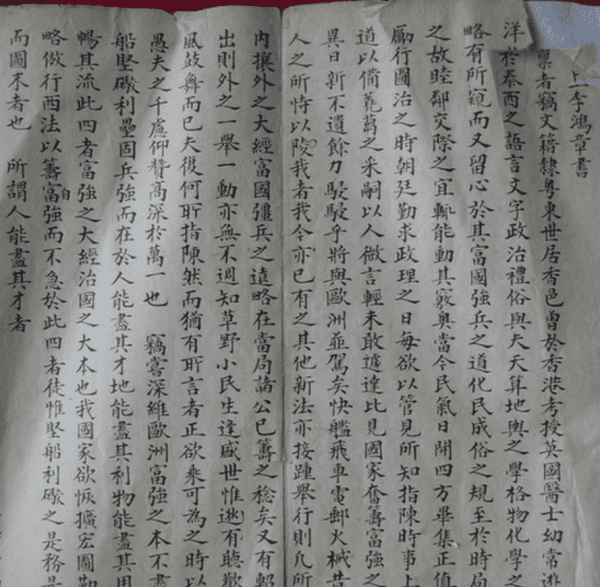 上李鴻章書
稟者竊文籍隸粵東世居香邑曾於香港考授英國醫士幼常遊
洋於泰西之語言文字政治禮俗與夫天算地輿之學格物化學之
略有所窺而又留心於其富國強兵之道化民成俗之規至於時局
之故睦鄰交際之宜輒能動其竅奧當今民氣日開四方畢集正值
勵行圖治之時朝廷勤求政理之日每欲以管見所知指陳時事上
道以備蒭蕘之采嗣以人微言輕未敢遽達比見國家奮籌富強之
異日新不遺餘力駸駸乎將與歐洲並駕矣快艦飛車電郵火械昔
人之所恃以陵我者我今亦已有之其他新法亦接踵舉行則凡所
內攘外之大經富國彊兵之遠略在當局諸公已籌之稔矣又有軺
出則外之一舉一動亦無不週知草野小民生逢盛世惟逖有聽歡
風鼓舞而已夫復何所指陳然而猶有所言者正欲乘可為之時以
愚夫之千慮仰贊高深於萬一也 竊嘗深維歐洲富強之本不盡
船堅礮利壘固兵強而在於人能盡其才地能盡其利物能盡其用
暢其流此四者富強之大經治國之大本也我國家欲恢擴宏圖勤
略倣行西法以籌富自強而不急於此四者徒惟堅船利礮之是務是
而圖末者也 所謂人能盡其才者